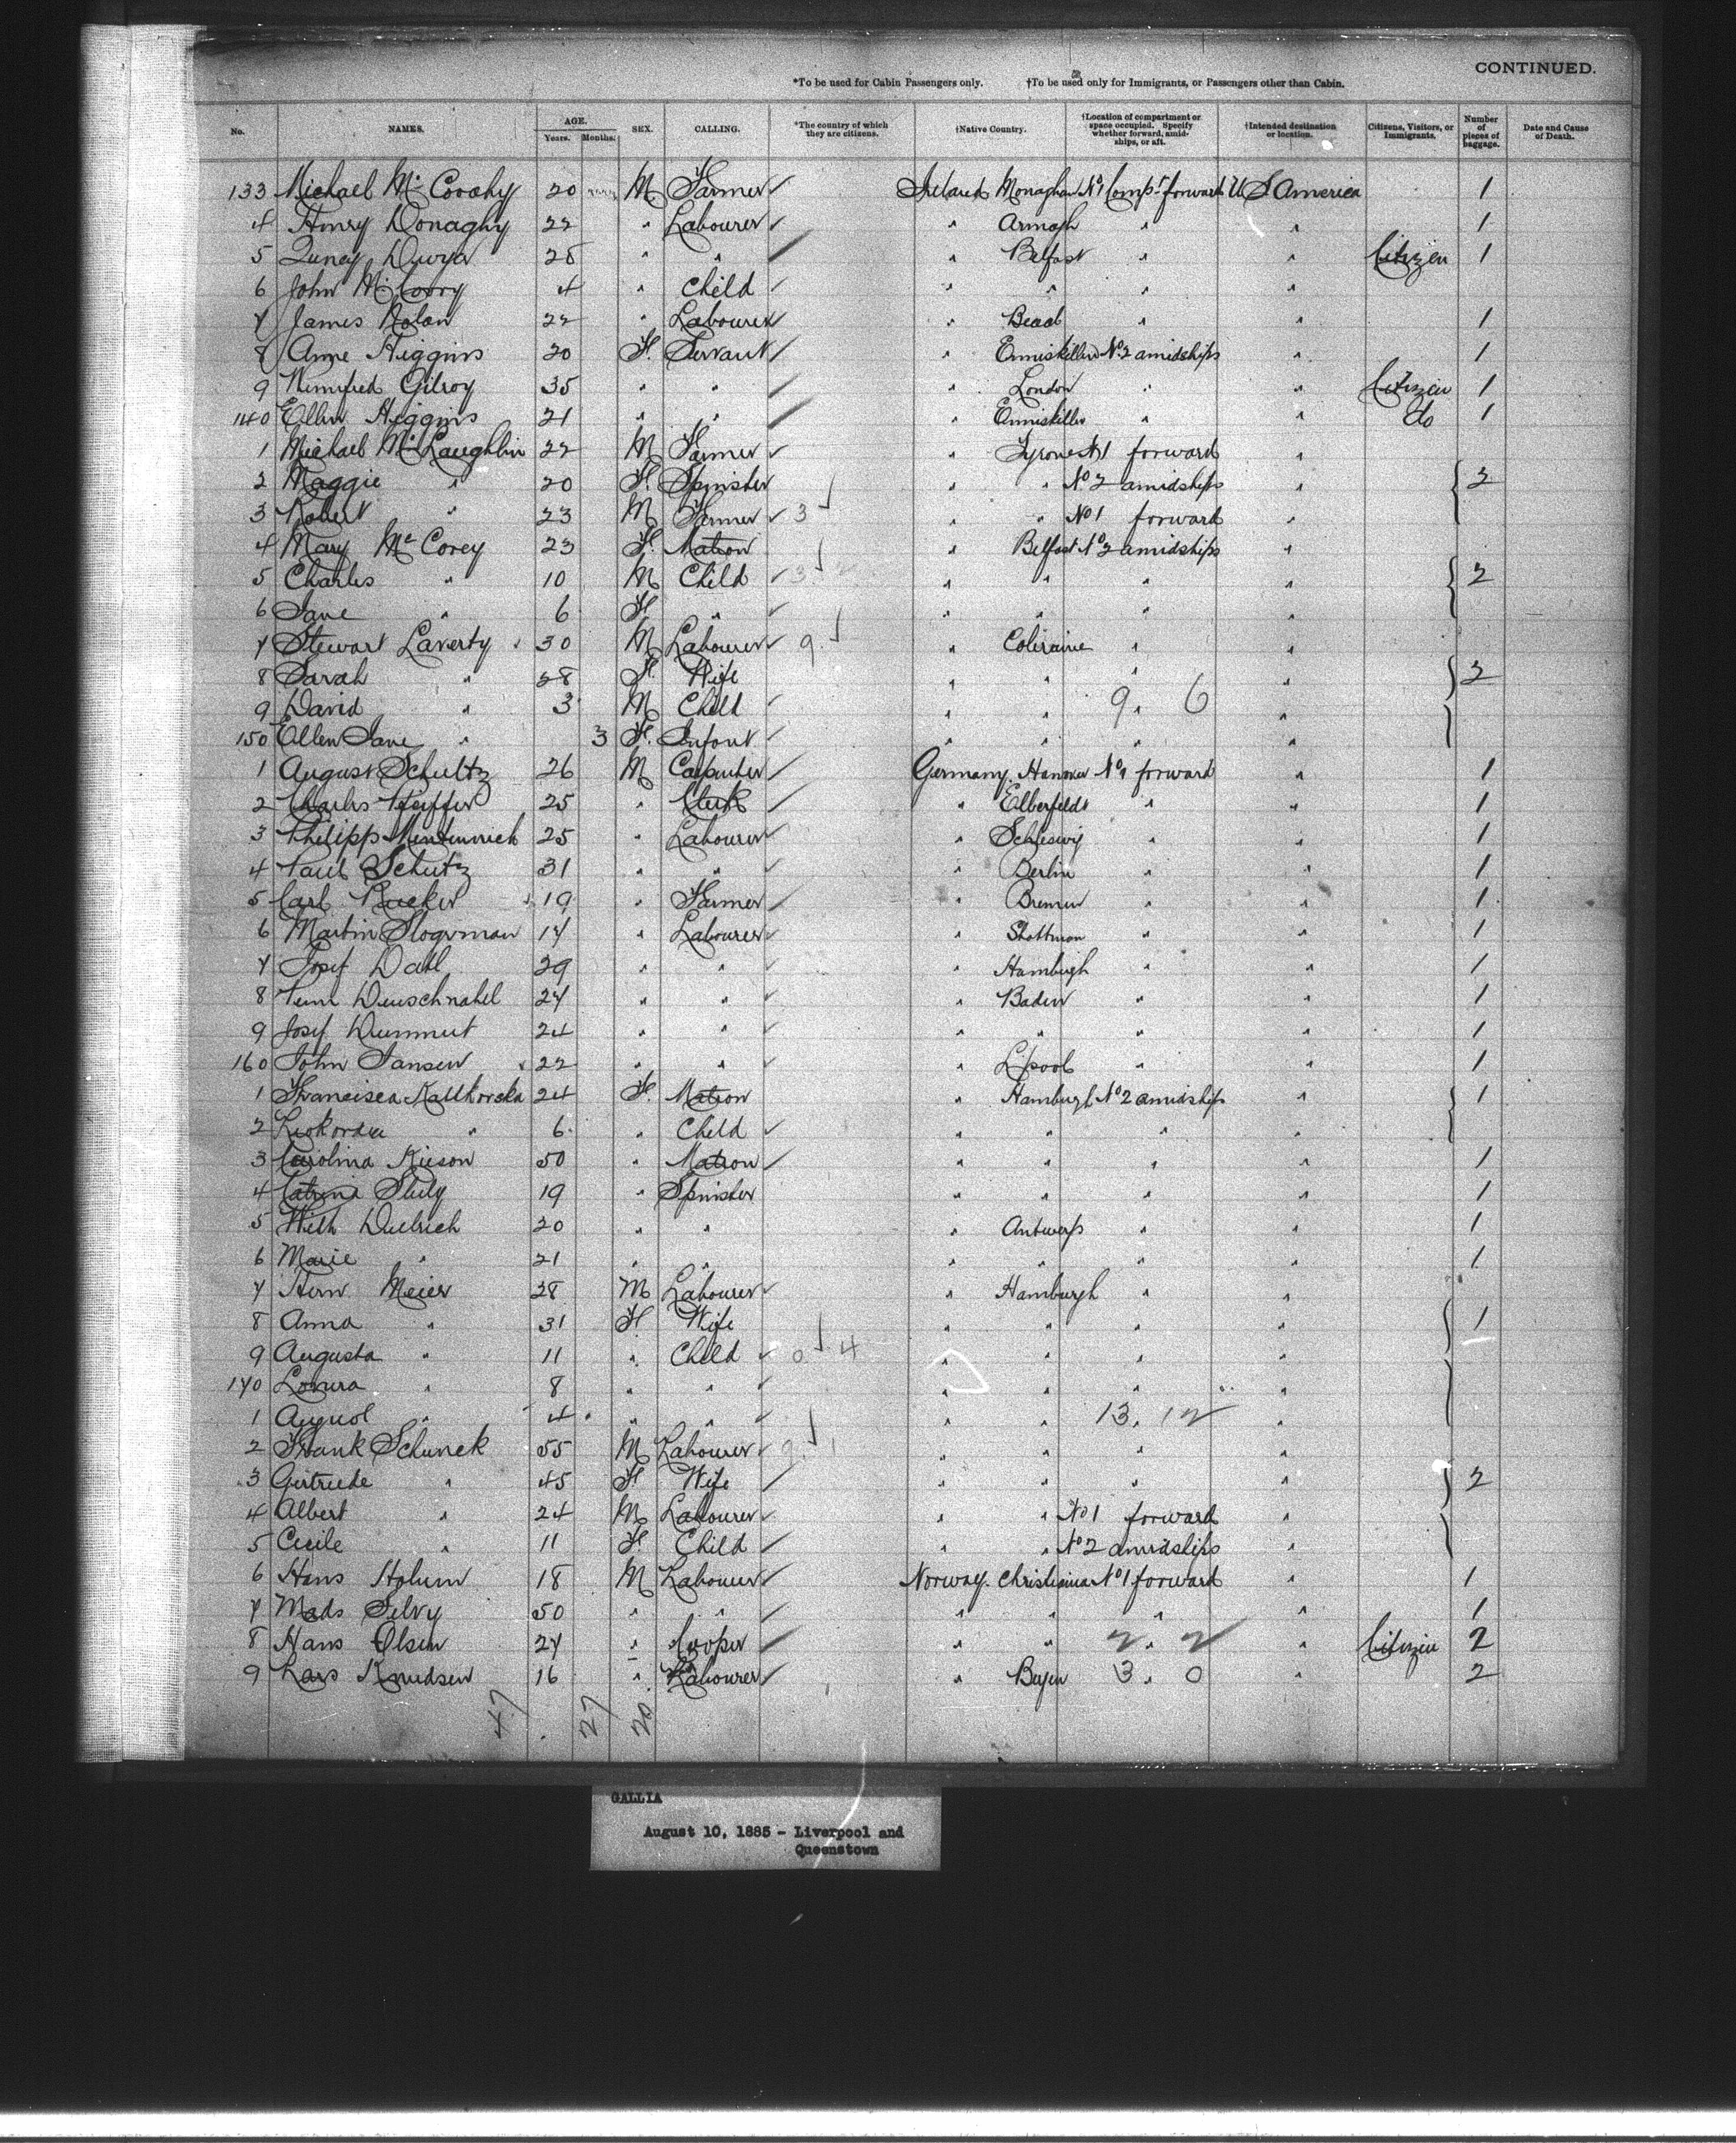 CONTINUED.
*To be used for Cabin Passengers only. †To be used only for Immigrants, or Passengers other than Cabin.
No. NAMES. AGE. Years. Months. SEX. CALLING. *The country of which they are citizens. †Native Country. †Location of compartment or space occupied. Specify whether forward, amidships, or aft. †Intended destination or location. Citizens, Visitors, or Immigrants. Number of pieces of baggage. Date and Cause of Death.
133 Michael Mc 20 M Farmer Ireland Monaghan No 1 Compt forward U S America 1
4 Henry Donaghy 22 " Labourer " Armagh " " 1
5 28 " " " Belfast " " Citizen 1
6 John McCorry 4 " Child " " " "
7 James Nolan 22 " Labourer " " " 1
8 Anne Higgins 20 F. Servant " Enniskillen No 2 amidships " 1
9 Winnifred Gilroy 35 " " " London " " Citizen 1
140 Ellen Higgins 21 " " " Enniskillen " " do 1
1 Michael McLaughlin 22 M Farmer " Tyrone No 1 forward "
2 Maggie " 20 F Spinster " " No 2 amidships " 2
3 Robert " 23 M Farmer 3 " " No 1 forward "
4 Mary McCorey 23 F. Matron " Belfast No 2 amidships "
5 Charles " 10 M Child 3 " " " " 2
6 Jane " 6 F " " " " "
7 Stewart Laverty 30 M Labourer 9 " Coleraine " "
8 Sarah " 28 F. Wife " " " " 2
9 David " 3 M Child " " 9 " 6 "
150 Ellen Jane " 3 F. Infant " " " "
1 August Schultz 26 M Carpenter Germany. Hanover No 1 forward " 1
2 Charles Pfeiffer 25 " Clerk " Elberfeld " " 1
3 Philipp 25 " Labourer " Schleswig " " 1
4 Paul Schutz 31 " " " Berlin " " 1
5 Carl 19 " Farmer " Bremen " " 1
6 Martin 17 " Labourer " " " 1
7 Josef Dahl 29 " " " Hamburgh " " 1
8 27 " " " Baden " " 1
9 Josef 24 " " " " " " 1
160 John Jansen 22 " " " L'pool " " 1
1 Francisca 24 F. Matron " Hamburgh No 2 amidships " 1
2 " 6 " Child " " " "
3 Carolina 50 " Matron " " " " 1
4 Catrina 19 " Spinster " " " " 1
5 Wilh 20 " " " Antwerp " " 1
6 Marie " 21 " " " " " " 1
7 Herm Meier 28 M Labourer " Hamburgh " "
8 Anna " 31 F Wife " " " " 1
9 Augusta " 11 " Child 0 4 " " " "
170 " 8 " " " " " "
1 " 4 " " " " 13 " 12 "
2 Frank Schunck 55 M Labourer " " " "
3 Gertrude " 45 F Wife " " " " 2
4 Albert " 24 M Labourer " " No 1 forward "
5 Cecile " 11 F Child " " No 2 amidships "
6 Hans Holum 18 M Labourer Norway. Christiania No 1 forward " 1
7 Mads Selvy 50 " " " " " " 1
8 Hans Olsen 27 " Cooper " " 2 " 2 " Citizen 2
9 Lars Knudsen 16 " Labourer " 3 " 0 " 2
47 27 20
GALLIA
August 10, 1885 - Liverpool and
Queenstown